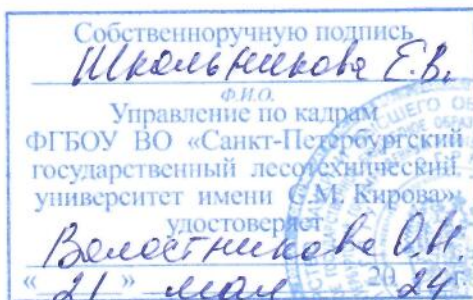 Собственноручную подпись
Школьникова Е.В.
Ф.И.О.
Управление по кадрам
ФГБОУ ВО «Санкт-Петербургский
государственный лесотехнический
университет имени С.М. Кирова»
удостоверяет
О.И.
«21» мая 2024 г.